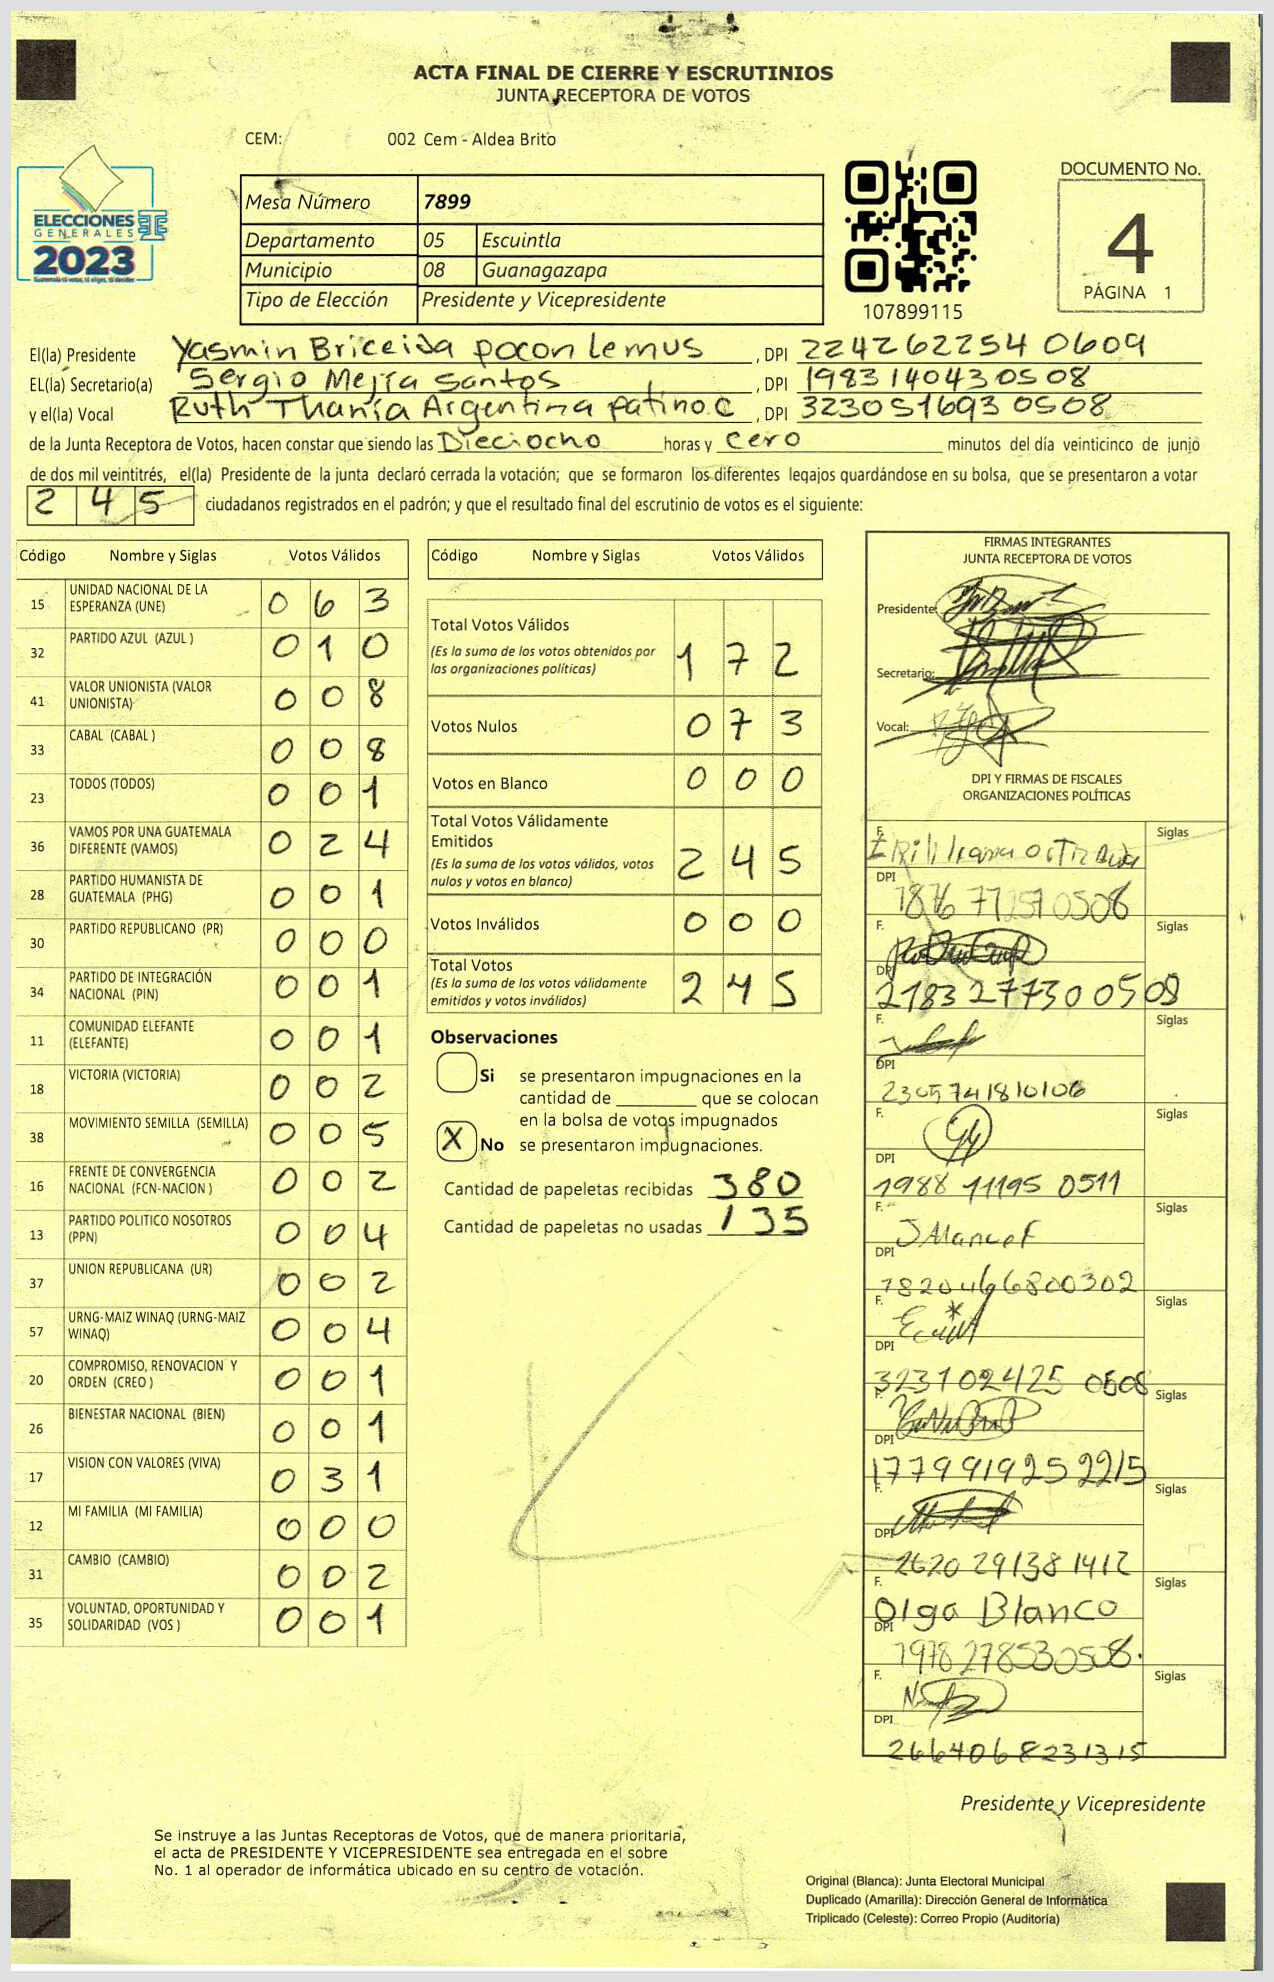 ACTA FINAL DE CIERRE Y ESCRUTINIOS
JUNTA RECEPTORA DE VOTOS
CEM: 002 Cem - Aldea Brito
ELECCIONES
GENERALES
2023
Mesa Número 7899
Departamento 05 Escuintla
Municipio 08 Guanagazapa
Tipo de Elección Presidente y Vicepresidente
107899115
DOCUMENTO No.
4
PÁGINA 1
El(la) Presidente Yasmin Briceida pocon lemus, DPI 2242622540609
EL(la) Secretario(a) Sergio Mejía Santos, DPI 1983140430508
y el(la) Vocal Ruth Thanía Argentina patino C, DPI 3230516930508
de la Junta Receptora de Votos, hacen constar que siendo las Dieciocho horas y cero minutos del día veinticinco de junio
de dos mil veintitrés, el(la) Presidente de la junta declaró cerrada la votación; que se formaron los diferentes legajos guardándose en su bolsa, que se presentaron a votar
245 ciudadanos registrados en el padrón; y que el resultado final del escrutinio de votos es el siguiente:
Código Nombre y Siglas Votos Válidos
15 UNIDAD NACIONAL DE LA ESPERANZA (UNE) 063
32 PARTIDO AZUL (AZUL ) 010
41 VALOR UNIONISTA (VALOR UNIONISTA) 008
33 CABAL (CABAL ) 008
23 TODOS (TODOS) 001
36 VAMOS POR UNA GUATEMALA DIFERENTE (VAMOS) 024
28 PARTIDO HUMANISTA DE GUATEMALA (PHG) 001
30 PARTIDO REPUBLICANO (PR) 000
34 PARTIDO DE INTEGRACIÓN NACIONAL (PIN) 001
11 COMUNIDAD ELEFANTE (ELEFANTE) 001
18 VICTORIA (VICTORIA) 002
38 MOVIMIENTO SEMILLA (SEMILLA) 005
16 FRENTE DE CONVERGENCIA NACIONAL (FCN-NACION ) 002
13 PARTIDO POLITICO NOSOTROS (PPN) 004
37 UNION REPUBLICANA (UR) 002
57 URNG-MAIZ WINAQ (URNG-MAIZ WINAQ) 004
20 COMPROMISO, RENOVACION Y ORDEN (CREO ) 001
26 BIENESTAR NACIONAL (BIEN) 001
17 VISION CON VALORES (VIVA) 031
12 MI FAMILIA (MI FAMILIA) 000
31 CAMBIO (CAMBIO) 002
35 VOLUNTAD, OPORTUNIDAD Y SOLIDARIDAD (VOS ) 001
Código Nombre y Siglas Votos Válidos
Total Votos Válidos
(Es la suma de los votos obtenidos por las organizaciones políticas) 172
Votos Nulos 073
Votos en Blanco 000
Total Votos Válidamente Emitidos
(Es la suma de los votos válidos, votos nulos y votos en blanco) 245
Votos Inválidos 000
Total Votos
(Es la suma de los votos válidamente emitidos y votos inválidos) 245
Observaciones
Si se presentaron impugnaciones en la
cantidad de ________ que se colocan
en la bolsa de votos impugnados
X No se presentaron impugnaciones.
Cantidad de papeletas recibidas 380
Cantidad de papeletas no usadas 135
FIRMAS INTEGRANTES
JUNTA RECEPTORA DE VOTOS
Presidente:
Secretario:
Vocal:
DPI Y FIRMAS DE FISCALES
ORGANIZACIONES POLÍTICAS
F. Siglas
DPI
F. Siglas
DPI 2183277300508
F. Siglas
DPI 2305741810106
F. Siglas
DPI 1988 11195 0511
F. Siglas
DPI
F. Siglas
DPI 3231024250508
F. Siglas
DPI 1779919252215
F. Siglas
DPI 2620 29138 1412
F. Olga Blanco Siglas
DPI 1978278530508.
F. Siglas
DPI 2664068231315
Presidente y Vicepresidente
Se instruye a las Juntas Receptoras de Votos, que de manera prioritaria,
el acta de PRESIDENTE Y VICEPRESIDENTE sea entregada en el sobre
No. 1 al operador de informática ubicado en su centro de votación.
Original (Blanca): Junta Electoral Municipal
Duplicado (Amarilla): Dirección General de Informática
Triplicado (Celeste): Correo Propio (Auditoría)